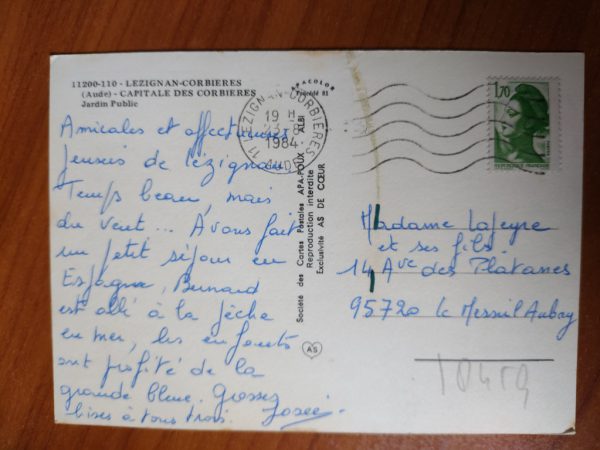 11200-110 - LEZIGNAN-CORBIERES
(Aude) - CAPITALE DES CORBIERES
Jardin Public
APACOLOR
Procédé 81
Amicales et affectueuses
pensées de Lézignan
Temps beau, mais
du vent... Avons fait
un petit séjour en
Espagne, Bernard
est allé à la pêche
en mer, les enfants
ont profité de la
grande bleue. Grosses
bises à tous trois. Josée.
Société des Cartes Postales APA-POUX - ALBI
Reproduction interdite
Exclusivité AS DE CŒUR
AS
11 LEZIGNAN-CORBIERES
19 H
1984
AUDE
1,70
REPUBLIQUE FRANÇAISE
Madame Lafeyre
et ses fils
14 Ave des Platanes
95720 Le Mesnil Aubry